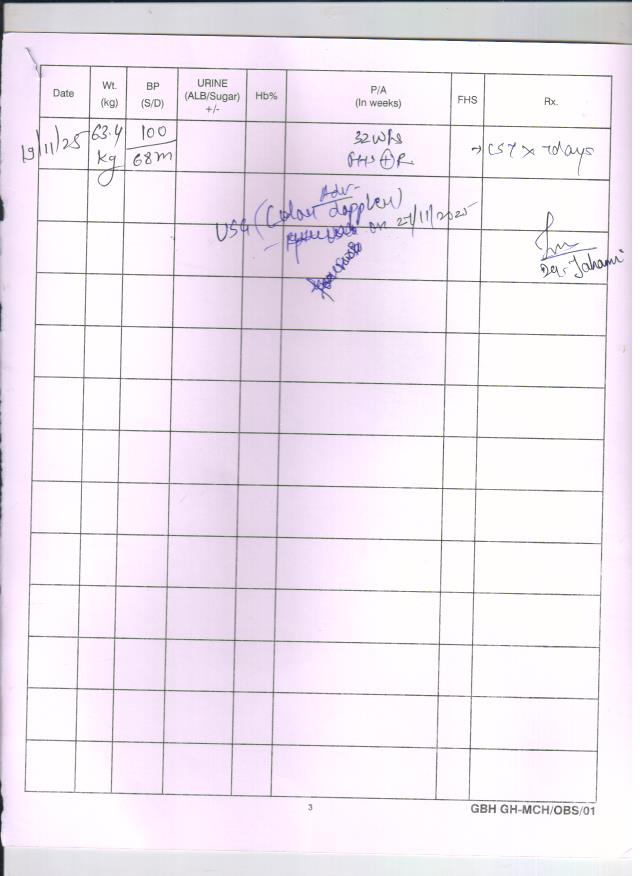 Date Wt. (kg) BP (S/D) URINE (ALB/Sugar) +/- Hb% P/A (In weeks) FHS Rx.
19/11/25 63.4 kg 100/68 m 32 wks → CST x 7days
FHS ⊕ R
Adv-
USG (Color doppler)
- on 27/11/2025
3
GBH GH-MCH/OBS/01